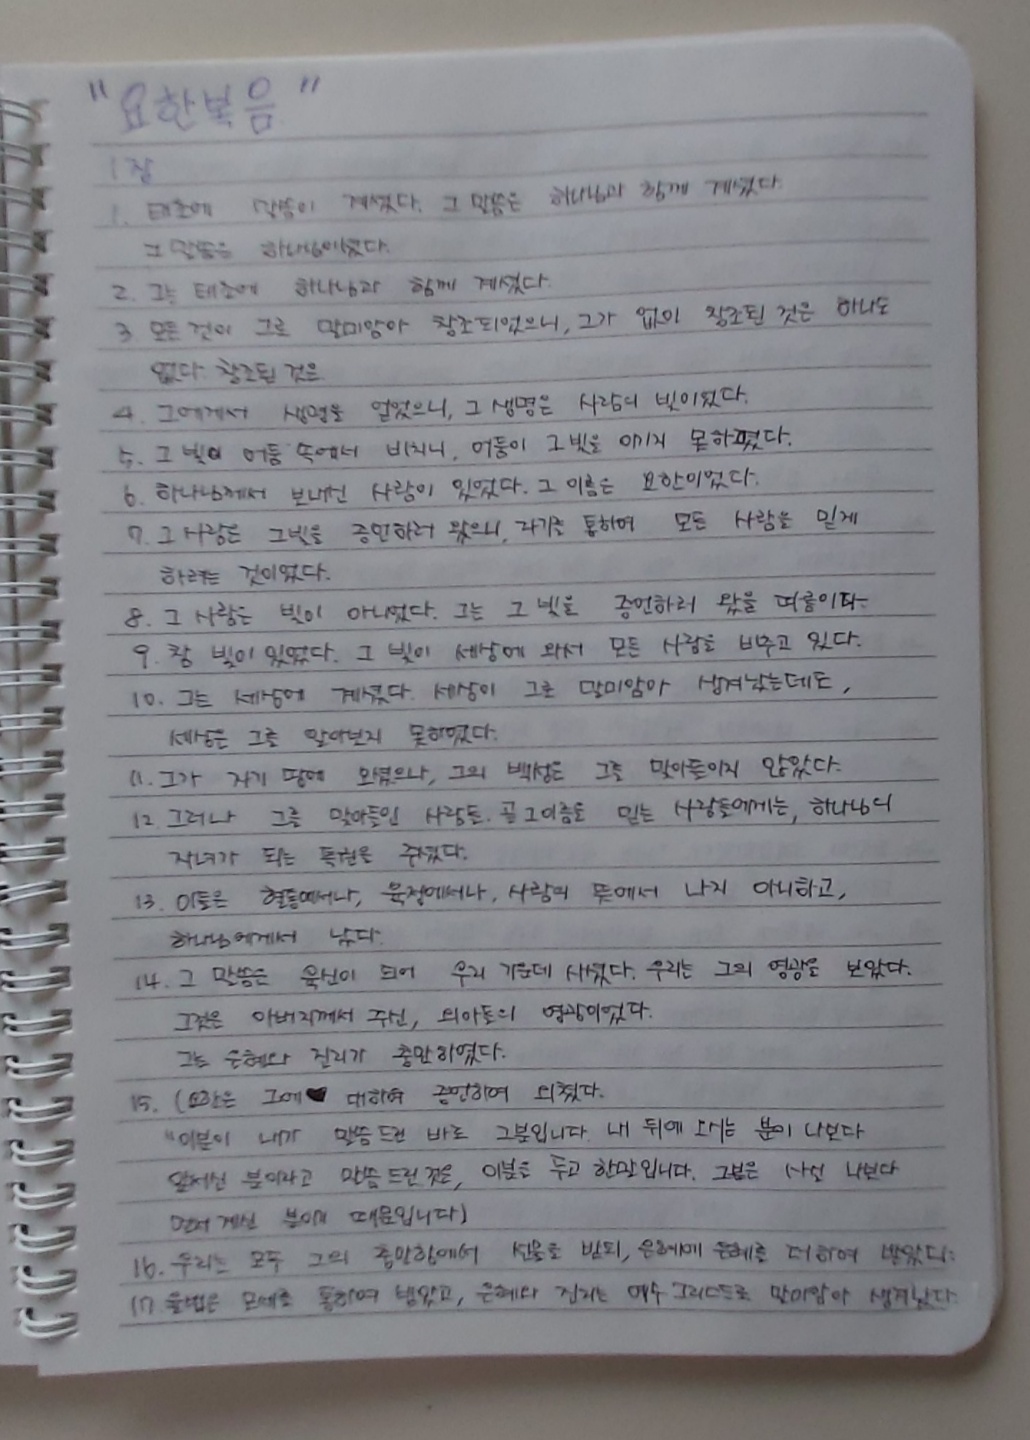 "요한복음"
1장
1. 태초에 말씀이 계셨다. 그 말씀은 하나님과 함께 계셨다.
그 말씀은 하나님이셨다.
2. 그는 태초에 하나님과 함께 계셨다.
3 모든 것이 그로 말미암아 창조되었으니, 그가 없이 창조된 것은 하나도
없다. 창조된 것은
4. 그에게서 생명을 얻었으니, 그 생명은 사람의 빛이었다.
5. 그 빛이 어둠 속에서 비치니, 어둠이 그 빛을 이기지 못하였다.
6. 하나님께서 보내신 사람이 있었다. 그 이름은 요한이었다.
7. 그 사람은 그 빛을 증언하러 왔으니, 자기를 통하여 모든 사람을 믿게
하려는 것이었다.
8. 그 사람은 빛이 아니었다. 그는 그 빛을 증언하러 왔을 따름이다.
9. 참 빛이 있었다. 그 빛이 세상에 와서 모든 사람을 비추고 있다.
10. 그는 세상에 계셨다. 세상이 그로 말미암아 생겨났는데도,
세상은 그를 알아보지 못하였다.
11. 그가 자기 땅에 오셨으나, 그의 백성은 그를 맞아들이지 않았다.
12. 그러나 그를 맞아들인 사람들. 곧 그 이름을 믿는 사람들에게는, 하나님의
자녀가 되는 특권을 주셨다.
13. 이들은 혈통에서나, 육정에서나, 사람의 뜻에서 나지 아니하고,
하나님에게서 났다.
14. 그 말씀은 육신이 되어 우리 가운데 사셨다. 우리는 그의 영광을 보았다.
그것은 아버지께서 주신, 외아들의 영광이었다.
그는 은혜와 진리가 충만하였다.
15. (요한은 그에 대하여 증언하여 외쳤다.
"이분이 내가 말씀드린 바로 그분입니다. 내 뒤에 오시는 분이 나보다
앞서신 분이라고 말씀드린 것은, 이분을 두고 한 말입니다. 그분은 사실 나보다
먼저 계신 분이기 때문입니다)
16. 우리는 모두 그의 충만함에서 선물을 받되, 은혜에 은혜를 더하여 받았다.
17 율법은 모세를 통하여 받았고, 은혜와 진리는 예수 그리스도로 말미암아 생겨났다.